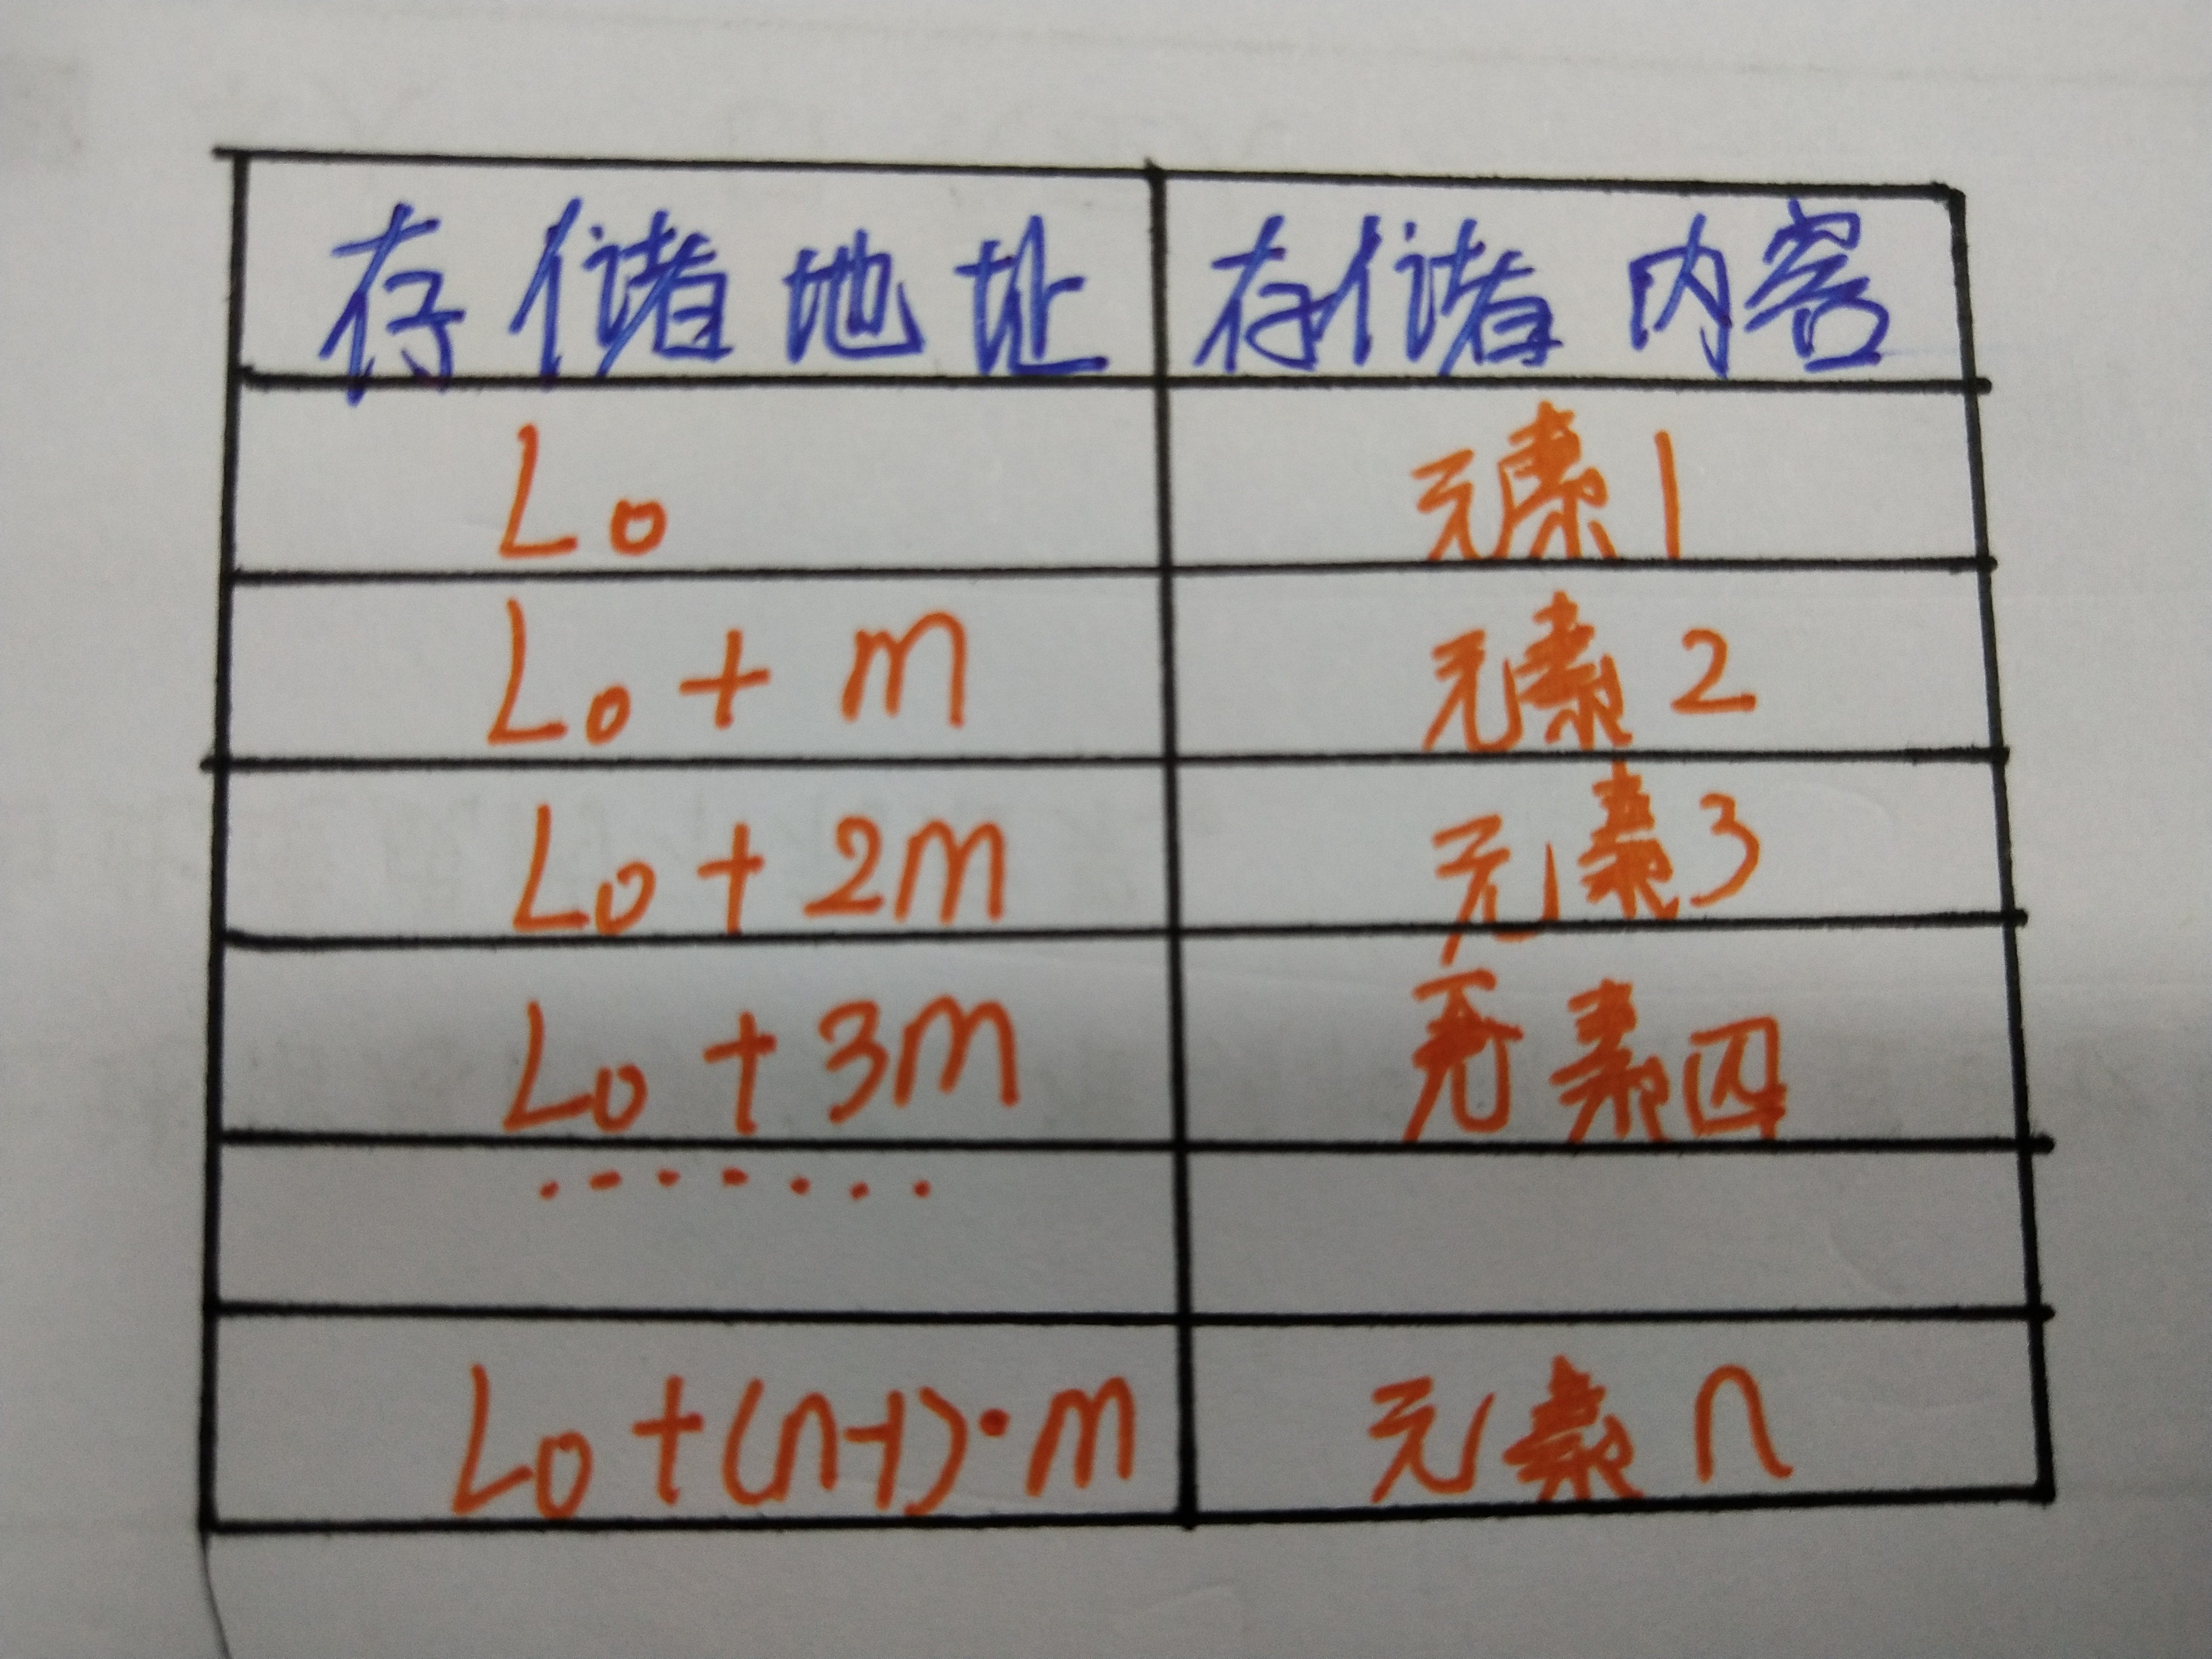 存储地址 存储内容
Lo 元素1
Lo + m 元素2
Lo + 2m 元素3
Lo + 3m 元素四
·······
Lo + (n-1)·m 元素n